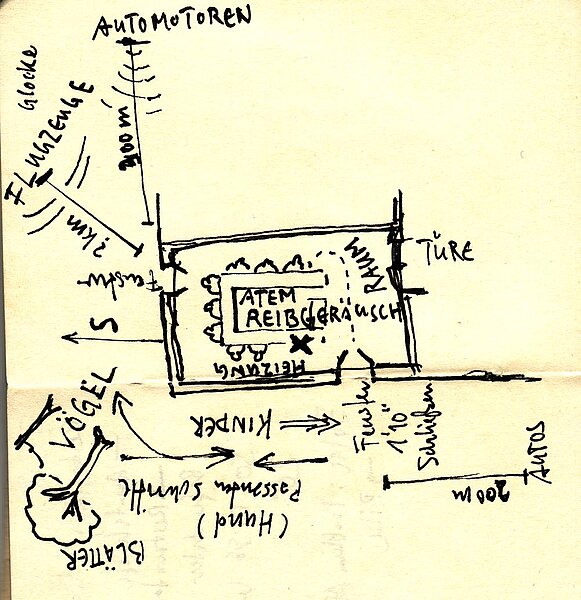 AUTOMOTOREN
Glocke
FLUGZEUGE
300 m
? km
Fenster
S
RAUM
TÜRE
ATEM
REIBGERÄUSCH
HEIZUNG
VÖGEL
KINDER
Fenster
1'10"
Schließen
AUTOS
200 m
Passanten Schritte
(Hund)
BLÄTTER